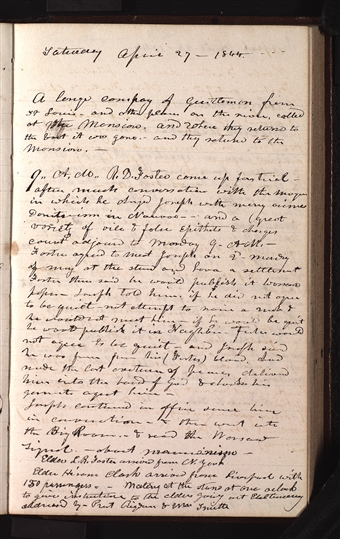 Saturday April 27 — 1844.
A large company of Gentlemen from
St Louis - and other places on the river, called
at the Mansion. and when they return to
the boat it was gone - and they return to the
Mansion. —
9. A.M. R. D. Foster come up for trial -
after much conversation with the mayor
in which he charged Joseph with many crimes
in Nauvoo - and a Great
variety of vile & false Epithets & charges
court adjourned to Monday 9. A.M. -
Foster agreed to meet Joseph on 2d monday
of may at the stand and have a settlement
Foster then said he would publish it in Warsaw
paper Joseph told him if he did not agree
to be quiet - not attempt to raise a mob
he should not meet him. if he would be quiet
he would publish it in Neighbor. Foster would
not agree to be quiet - and Joseph said
he was free from his (Fosters) blood. and
made the last overture of peace, delivered
him into the hand of God & shakes his
garments against him -
Joseph continued in office some time
in conversation & then went into
the Big Room. & read the Warsaw
Signal - about mormonism
Elder J. R. Foster arrived from N. York
Elder Hiram Clark arrived from Liverpool with
150 passengers. - Meeting at the stand at one oclock
to give instruction to the elders going out Electioneering
addressed by Prest Rigdon & Wm Smith